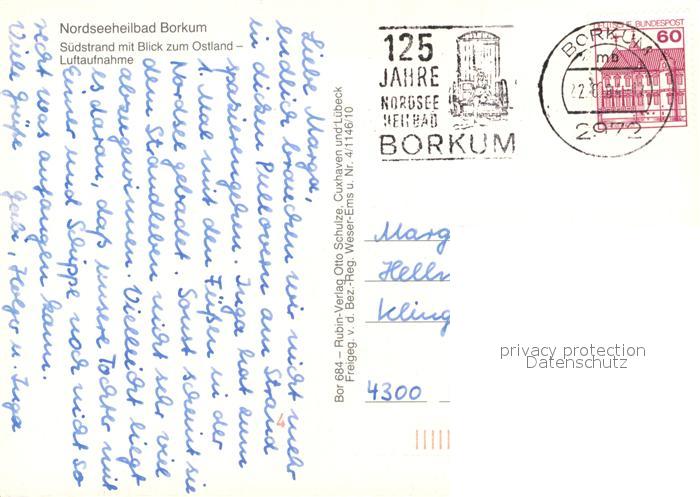 Nordseeheilbad Borkum
Südstrand mit Blick zum Ostland –
Luftaufnahme
Liebe Marga,
endlich brauchen wir nicht mehr
in dicken Pullovern am Strand
spazierengehen. Inga hat zum
1. Mal mit den Füßen in der
Nordsee gebadet. Sonst scheint sie
dem Strandleben nicht sehr viel
abzugewinnen. Vielleicht liegt
es daran, daß unsere Tochter mit
Eimer und Schippe noch nicht so
recht was anfangen kann.
Viele Grüße Gabi, Holger u. Inga
Bor 684 – Rubin-Verlag Otto Schulze, Cuxhaven und Lübeck
Freigeg. v. d. Bez.-Reg. Weser-Ems u. Nr. 4/1146/10
125
JAHRE
NORDSEE
HEILBAD
BORKUM
BORKUM 1
mb
2972
DEUTSCHE BUNDESPOST
60
Marg
Hellr
Kling
4300
privacy protection
Datenschutz